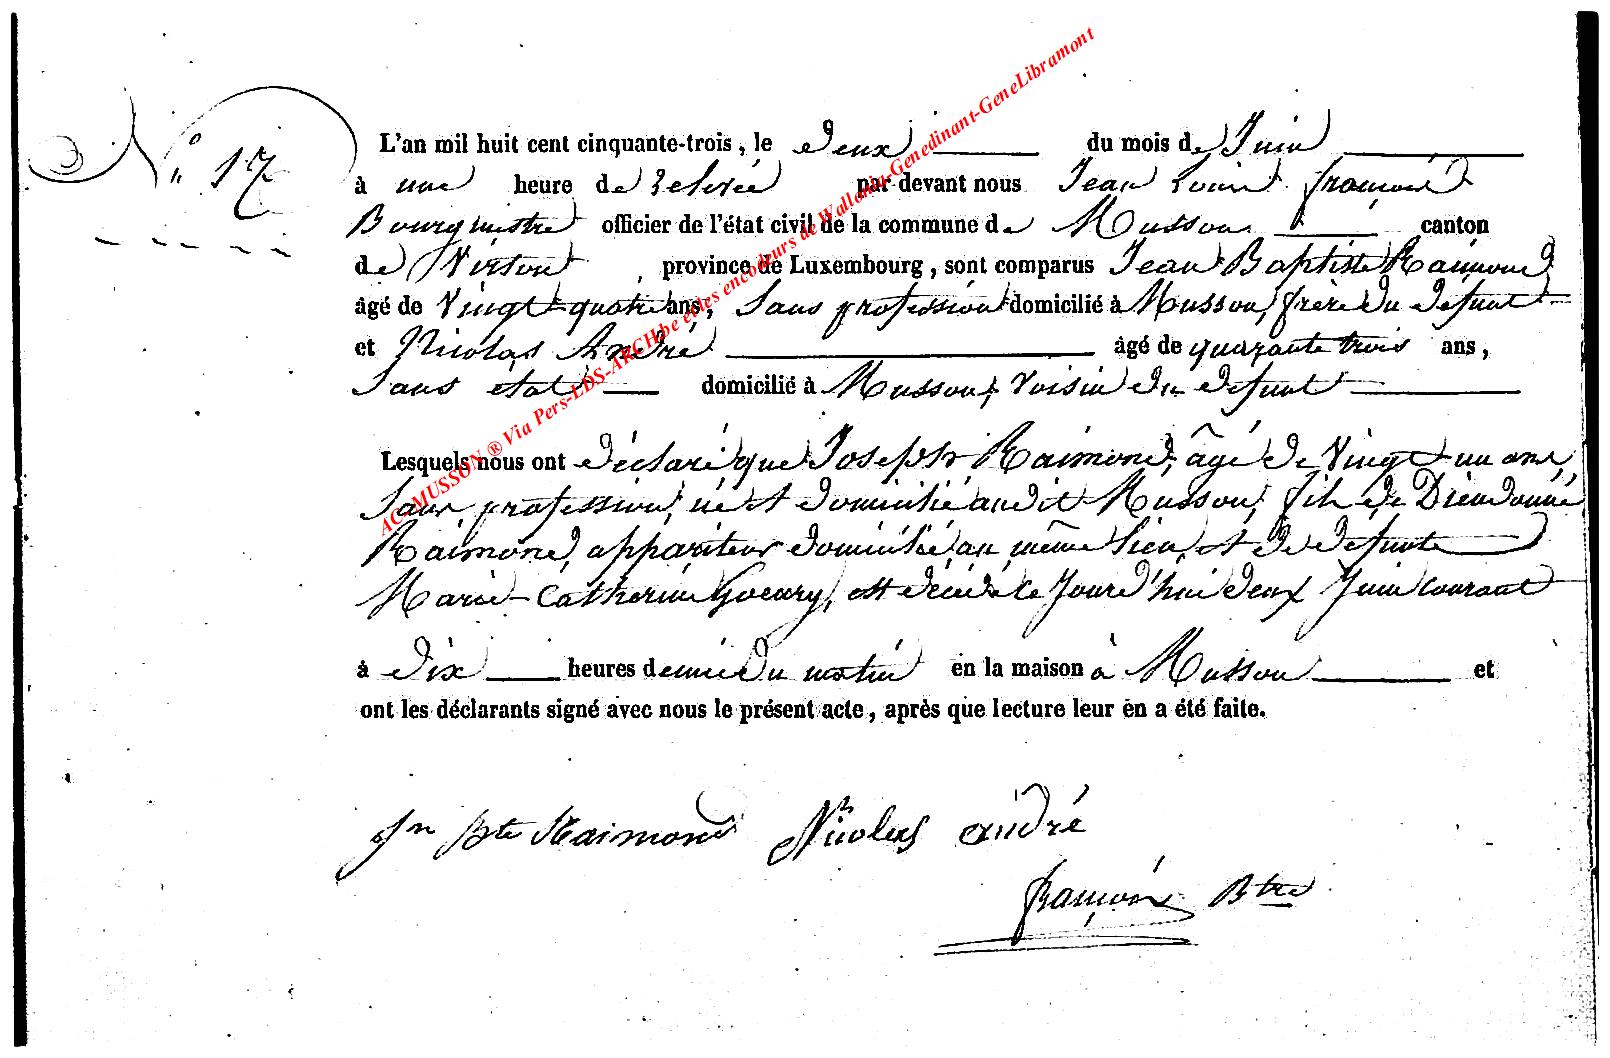 N° 17
L'an mil huit cent cinquante-trois, le deux du mois de Juin
à une heure de relevée par devant nous Jean Louis françois
Bourgmestre officier de l'état civil de la commune de Musson canton
de Virton, province de Luxembourg, sont comparus Jean Baptiste Raimond
âgé de Vingt-quatre ans, Sans profession domicilié à Musson, frère du défunt
et Nicolas André âgé de quarante trois ans,
Sans état domicilié à Musson, Voisin du défunt
Lesquels nous ont déclaré que Joseph Raimond, âgé de Vingt-un ans,
Sans profession, né et domicilié audit Musson, fils de Dieudonné
Raimond, appariteur domicilié au même lieu, et de défunte
Marie-Catherine Goeury, est décédé ce Jourd'hui deux Juin courant
à dix heures demie du matin en la maison à Musson et
ont les déclarants signé avec nous le présent acte, après que lecture leur en a été faite.
Jn Bte Raimond Nicolas andré
françois Btre
AC-MUSSON ® Via Pers-LDS-ARCH.be et les encodeurs de Wallonia-Genedinant-GeneLibramont